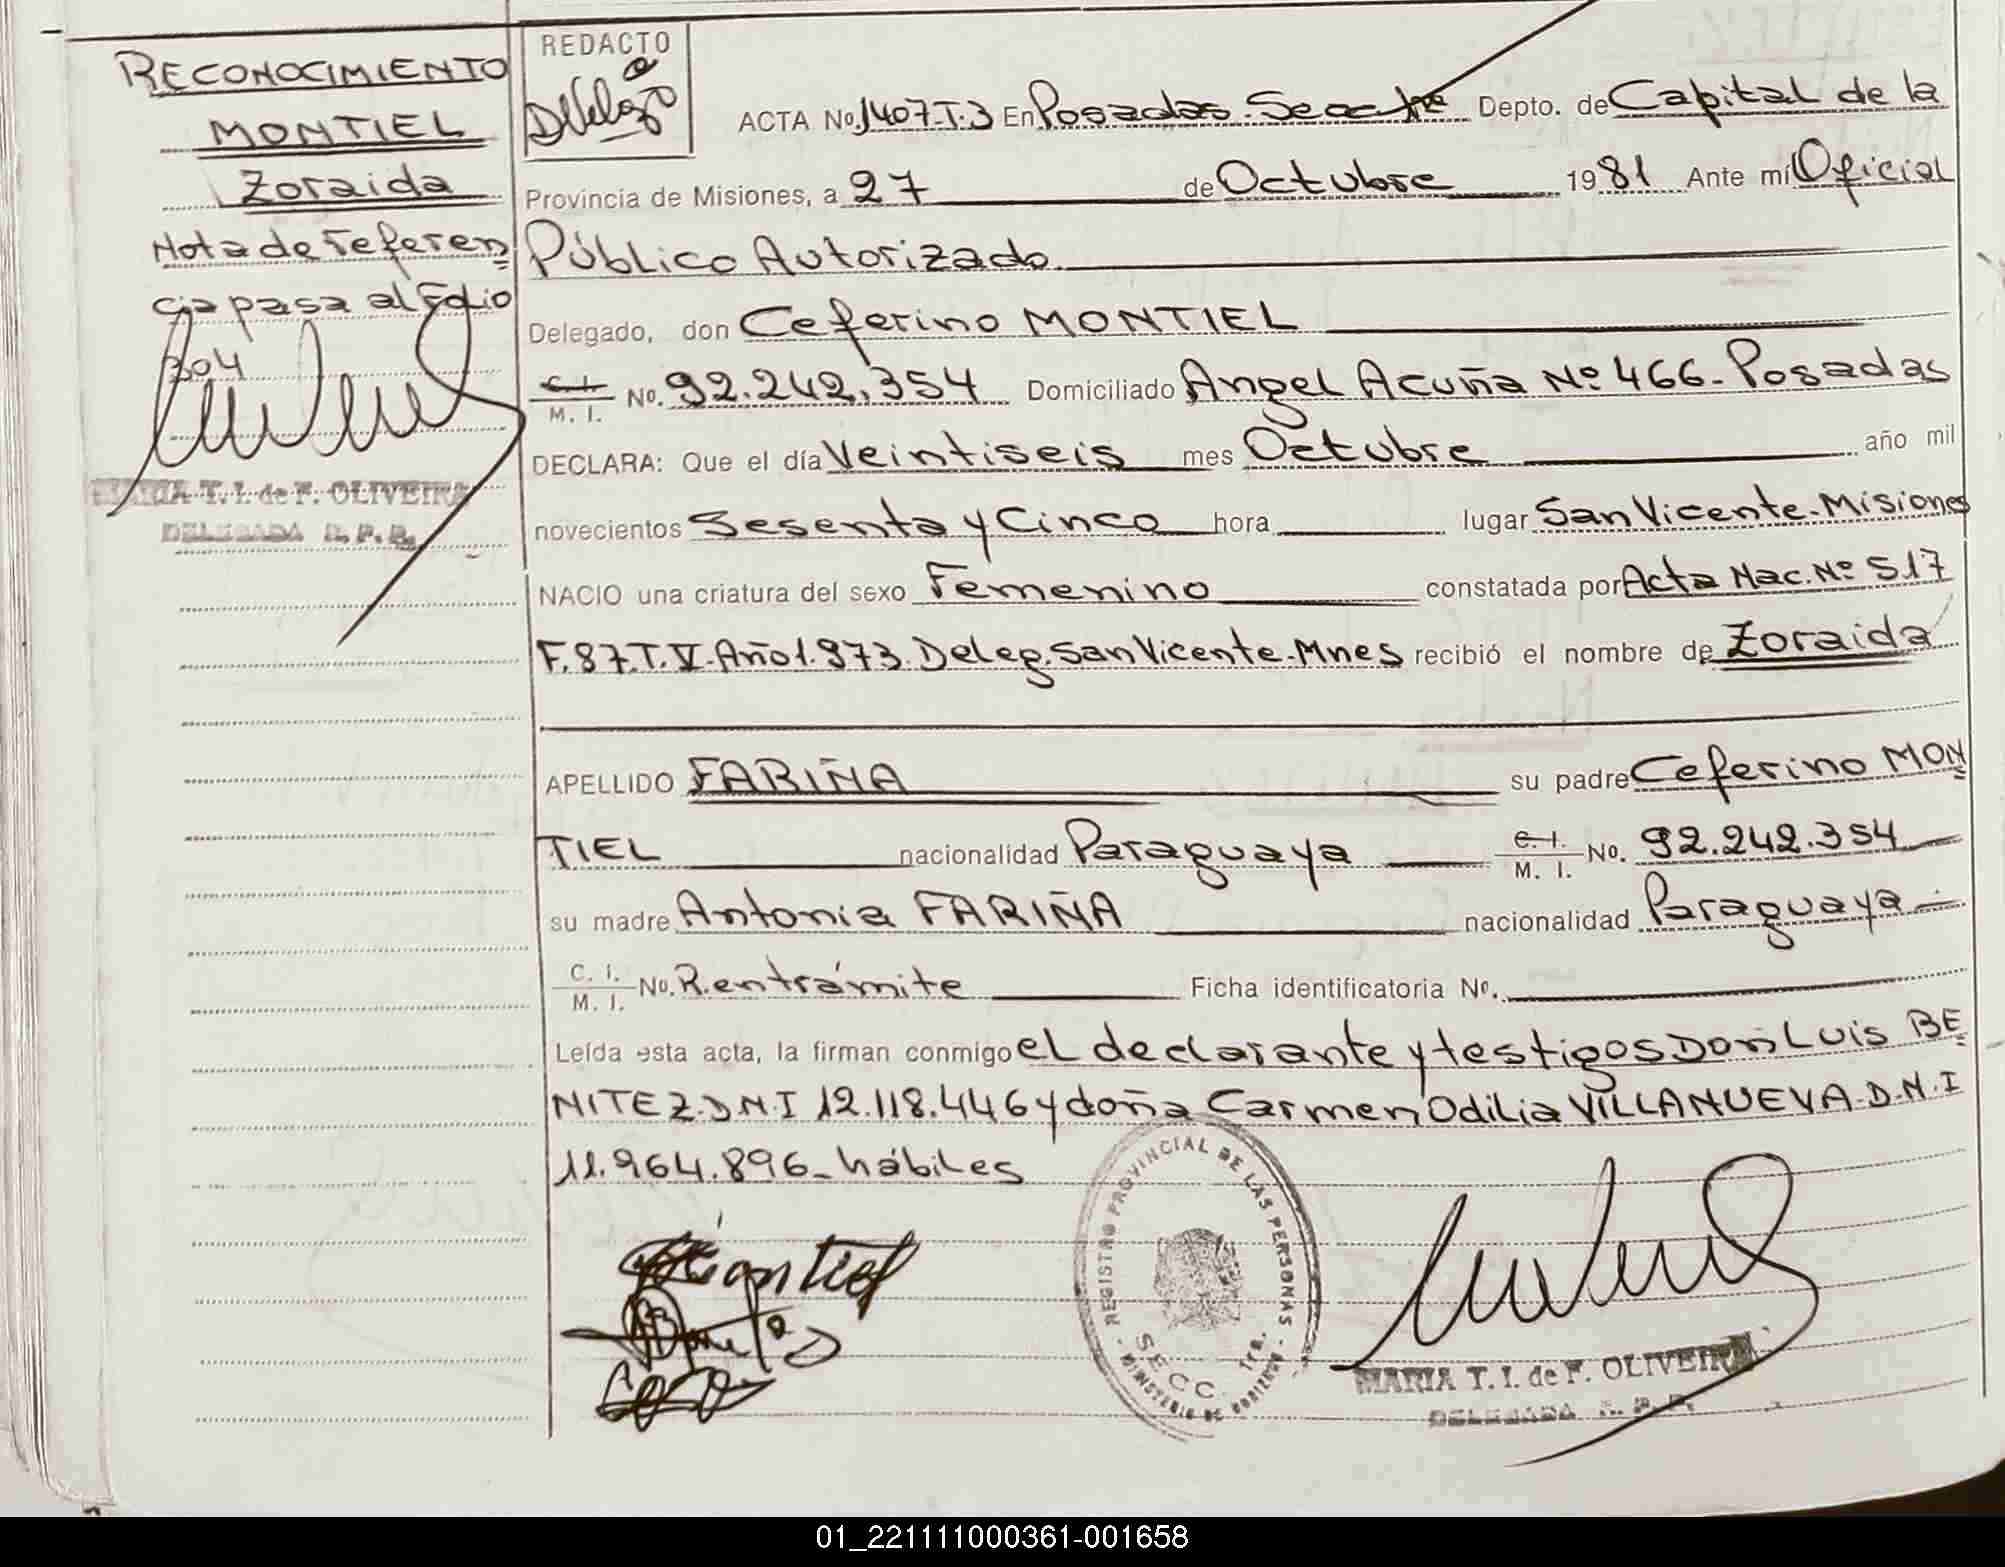 RECONOCIMIENTO
MONTIEL
Zoraida
Nota de referen
cia pasa al Folio
304
MARIA T. I. de F. OLIVEIRA
DELEGADA R. P. P.
REDACTO
ACTA No. 1407-T.3 En Posadas-Secc 1ra Depto. de Capital de la
Provincia de Misiones, a 27 de Octubre 1981 Ante mí Oficial
Público Autorizado
Delegado, don Ceferino MONTIEL
C. I. M. I. No. 92.242.354 Domiciliado Angel Acuña Nº 466-Posadas
DECLARA: Que el día Veintiseis mes Octubre año mil
novecientos Sesenta y Cinco hora lugar San Vicente-Misiones
NACIO una criatura del sexo Femenino constatada por Acta Nac. Nº 517
F.87.T.V-Año 1.973-Deleg.San Vicente-Mnes recibió el nombre de Zoraida
APELLIDO FARIÑA su padre Ceferino MON
TIEL nacionalidad Paraguaya C. I. M. I. No. 92.242.354
su madre Antonia FARIÑA nacionalidad Paraguaya
C. I. M. I. No. R. en trámite Ficha identificatoria Nº.
Leída esta acta, la firman conmigo el declarante y testigos Don Luis BE
NITEZ-D.N.I 12.118.446 y doña Carmen Odilia VILLANUEVA-D.N.I
11.964.896-hábiles
Montiel
REGISTRO PROVINCIAL DE LAS PERSONAS
SECC. 1ra.
MINISTERIO DE GOBIERNO
MARIA T. I. de F. OLIVEIRA
DELEGADA R. P. P.
01_221111000361-001658